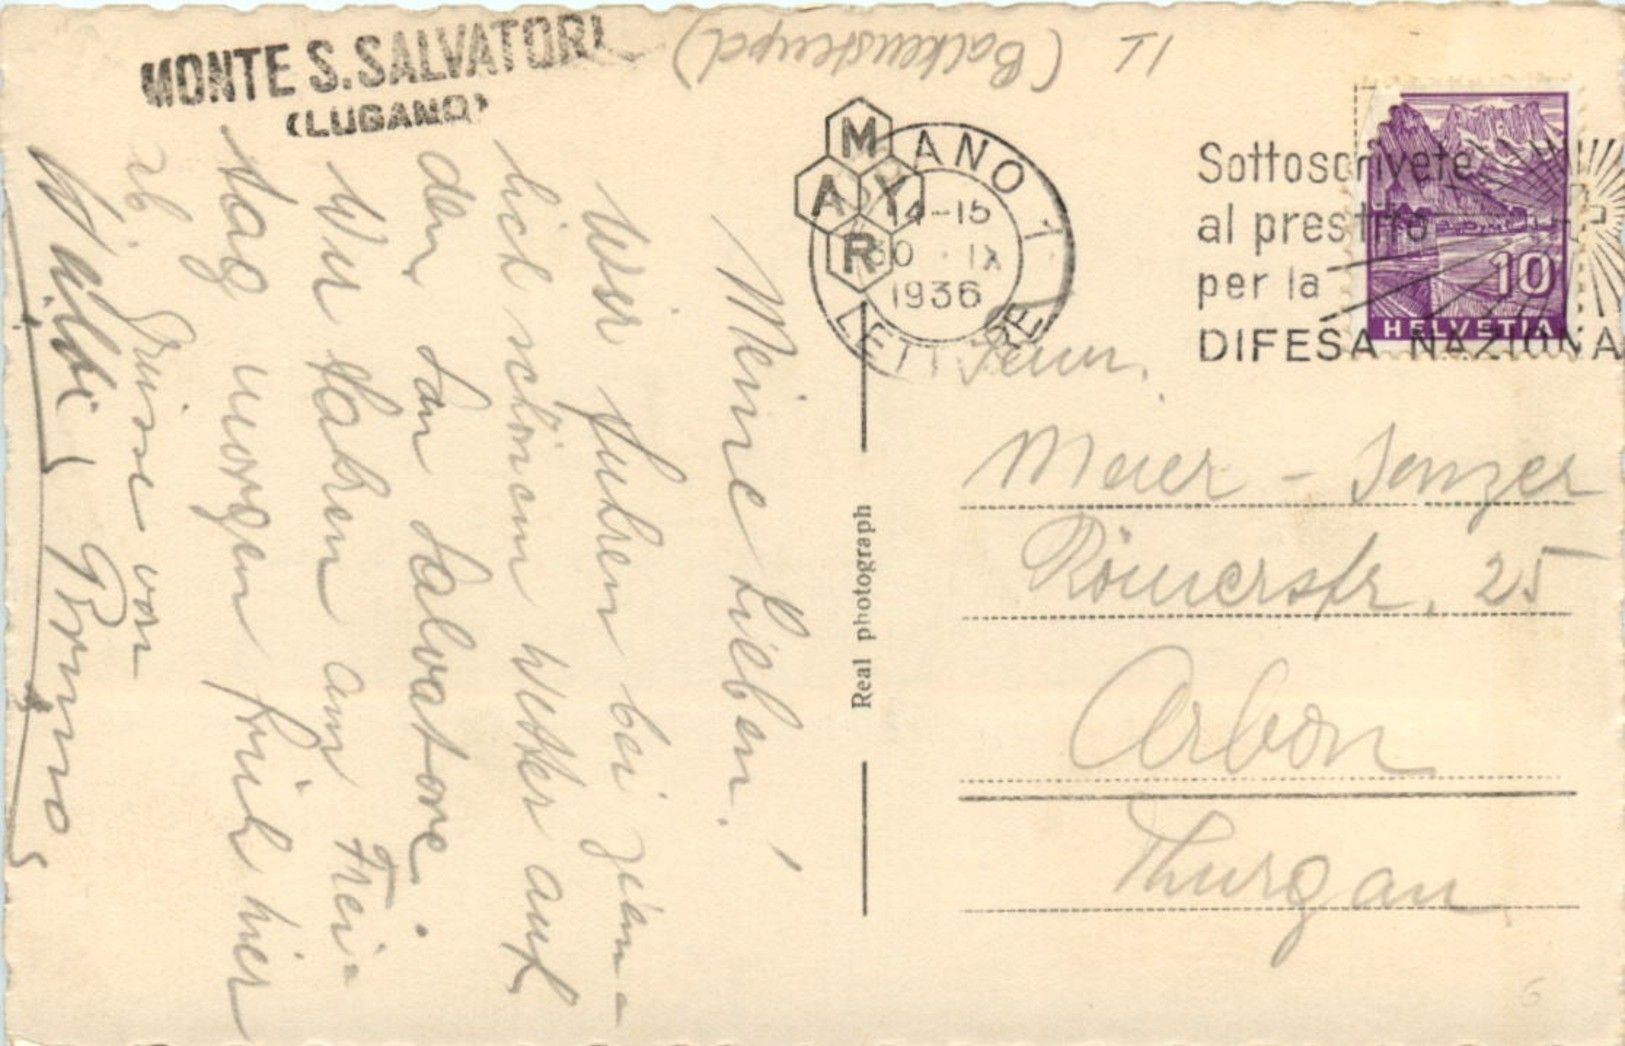 MONTE S. SALVATORE
(LUGANO)
(Balkenstempel)
MAYR
LUGANO 1
14-15
30 . IX
1936
LETTERE
Sottoscrivete
al prestito
per la
DIFESA NAZIONA
10
HELVETIA
Meine Lieben!
Wir fuhren bei ziem-
lich schönem Wetter auf
den San Salvatore.
Wir haben am Frei-
tag morgen früh hier
ab Grüsse von
Bruno
Real photograph
Fam.
Meier - Senzer
Römerstr. 25
Arbon
Thurgau
6